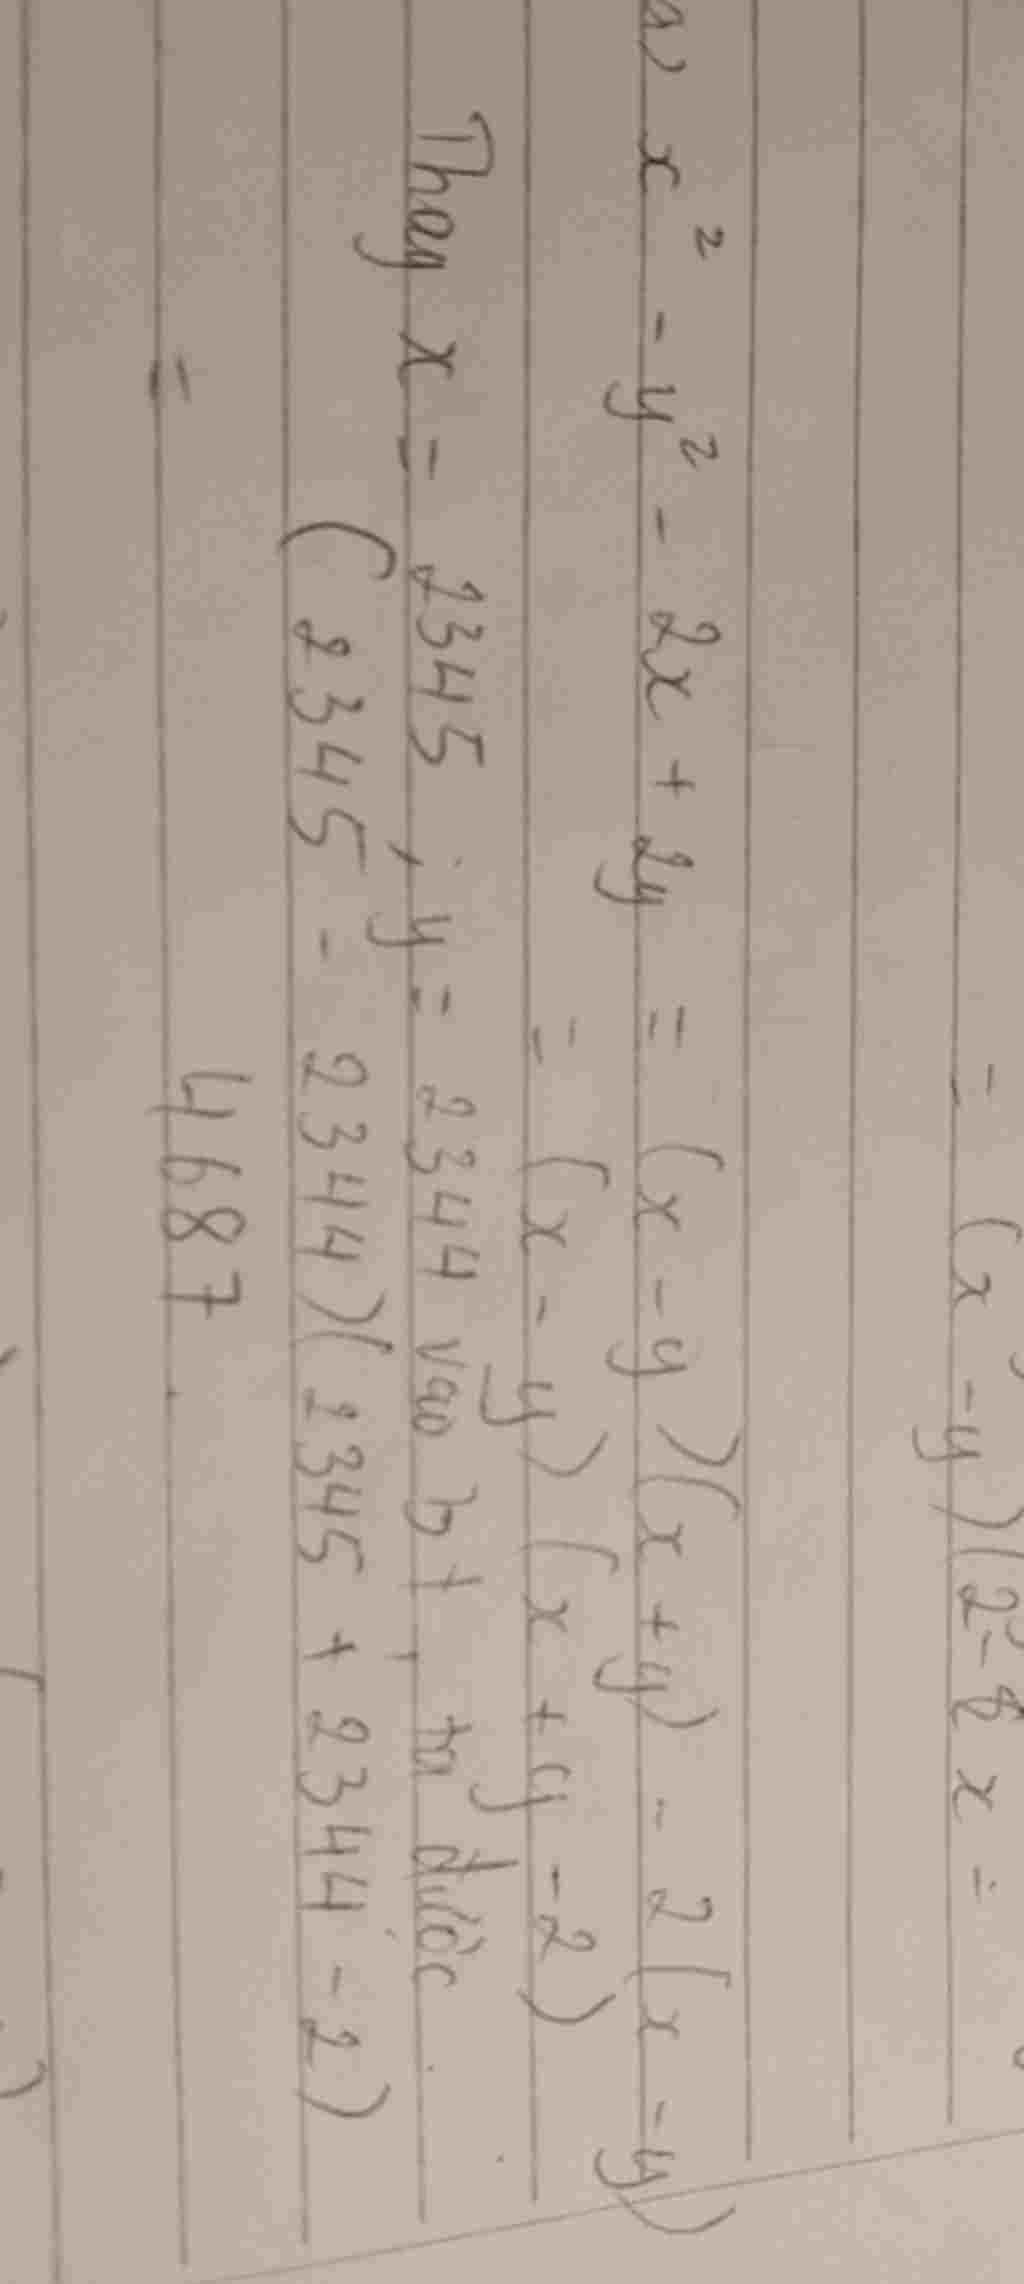 = (x - y)(2 - 8 x =
a) x² - y² - 2x + 2y = (x - y)(x + y) - 2(x - y)
= (x - y)(x + y - 2)
Thay x = 2345 ; y = 2344 vào bt, ta được
(2345 - 2344)(2345 + 2344 - 2)
= 4687